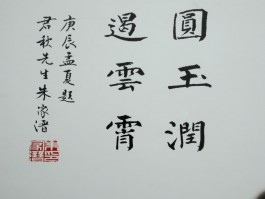 圓玉潤
遏雲霄
庚辰孟夏題
君秋先生朱家溍